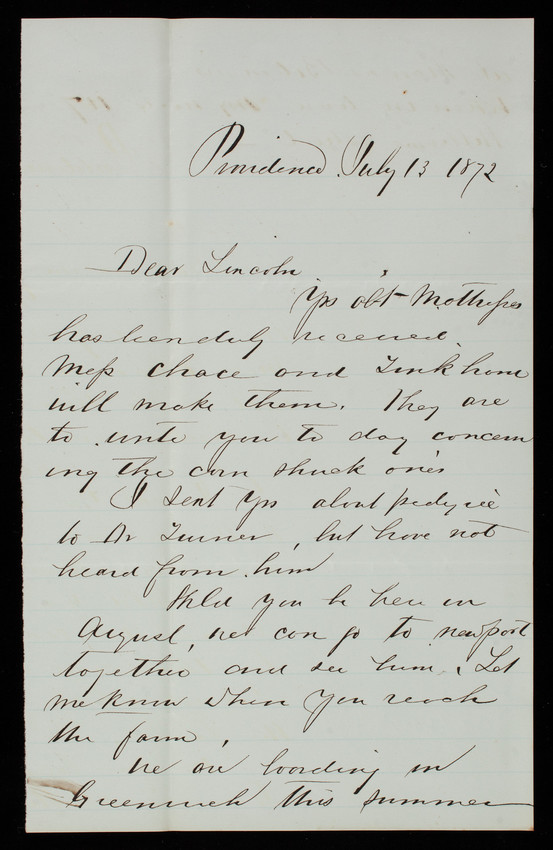 Providence July 13 1872
Dear Lincoln
Yrs abt Mattresses
has been duly received.
Mess Chace and Tinkham
will make them. They are
to write you to day concern
ing the corn shuck ones
I sent Yrs about pedigree
to Dr Turner, but have not
heard from him
you be here in
August, we can go to newport
together and see him. Let
me know when you reach
the farm,
We are boarding in
Greenwich this summer